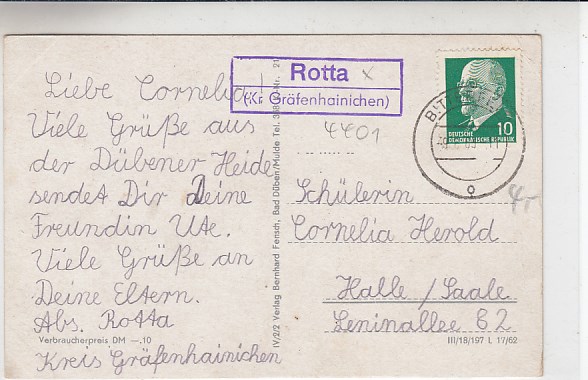 Liebe Cornelia!
Viele Grüße aus
der Dübener Heide
sendet Dir Deine
Freundin Ute.
Viele Grüße an
Deine Eltern.
Abs. Rotta
Verbraucherpreis DM —,10
Kreis Gräfenhainichen
IV/2/2 Verlag Bernhard Fensch, Bad Düben/Mulde Tel. 388 Nr. 21
Rotta x
(Kr. Gräfenhainichen)
4401
DEUTSCHE
DEMOKRATISCHE REPUBLIK
10
Schülerin
Cornelia Herold
Halle/Saale
Leninallee 62
III/18/197 L 17/62